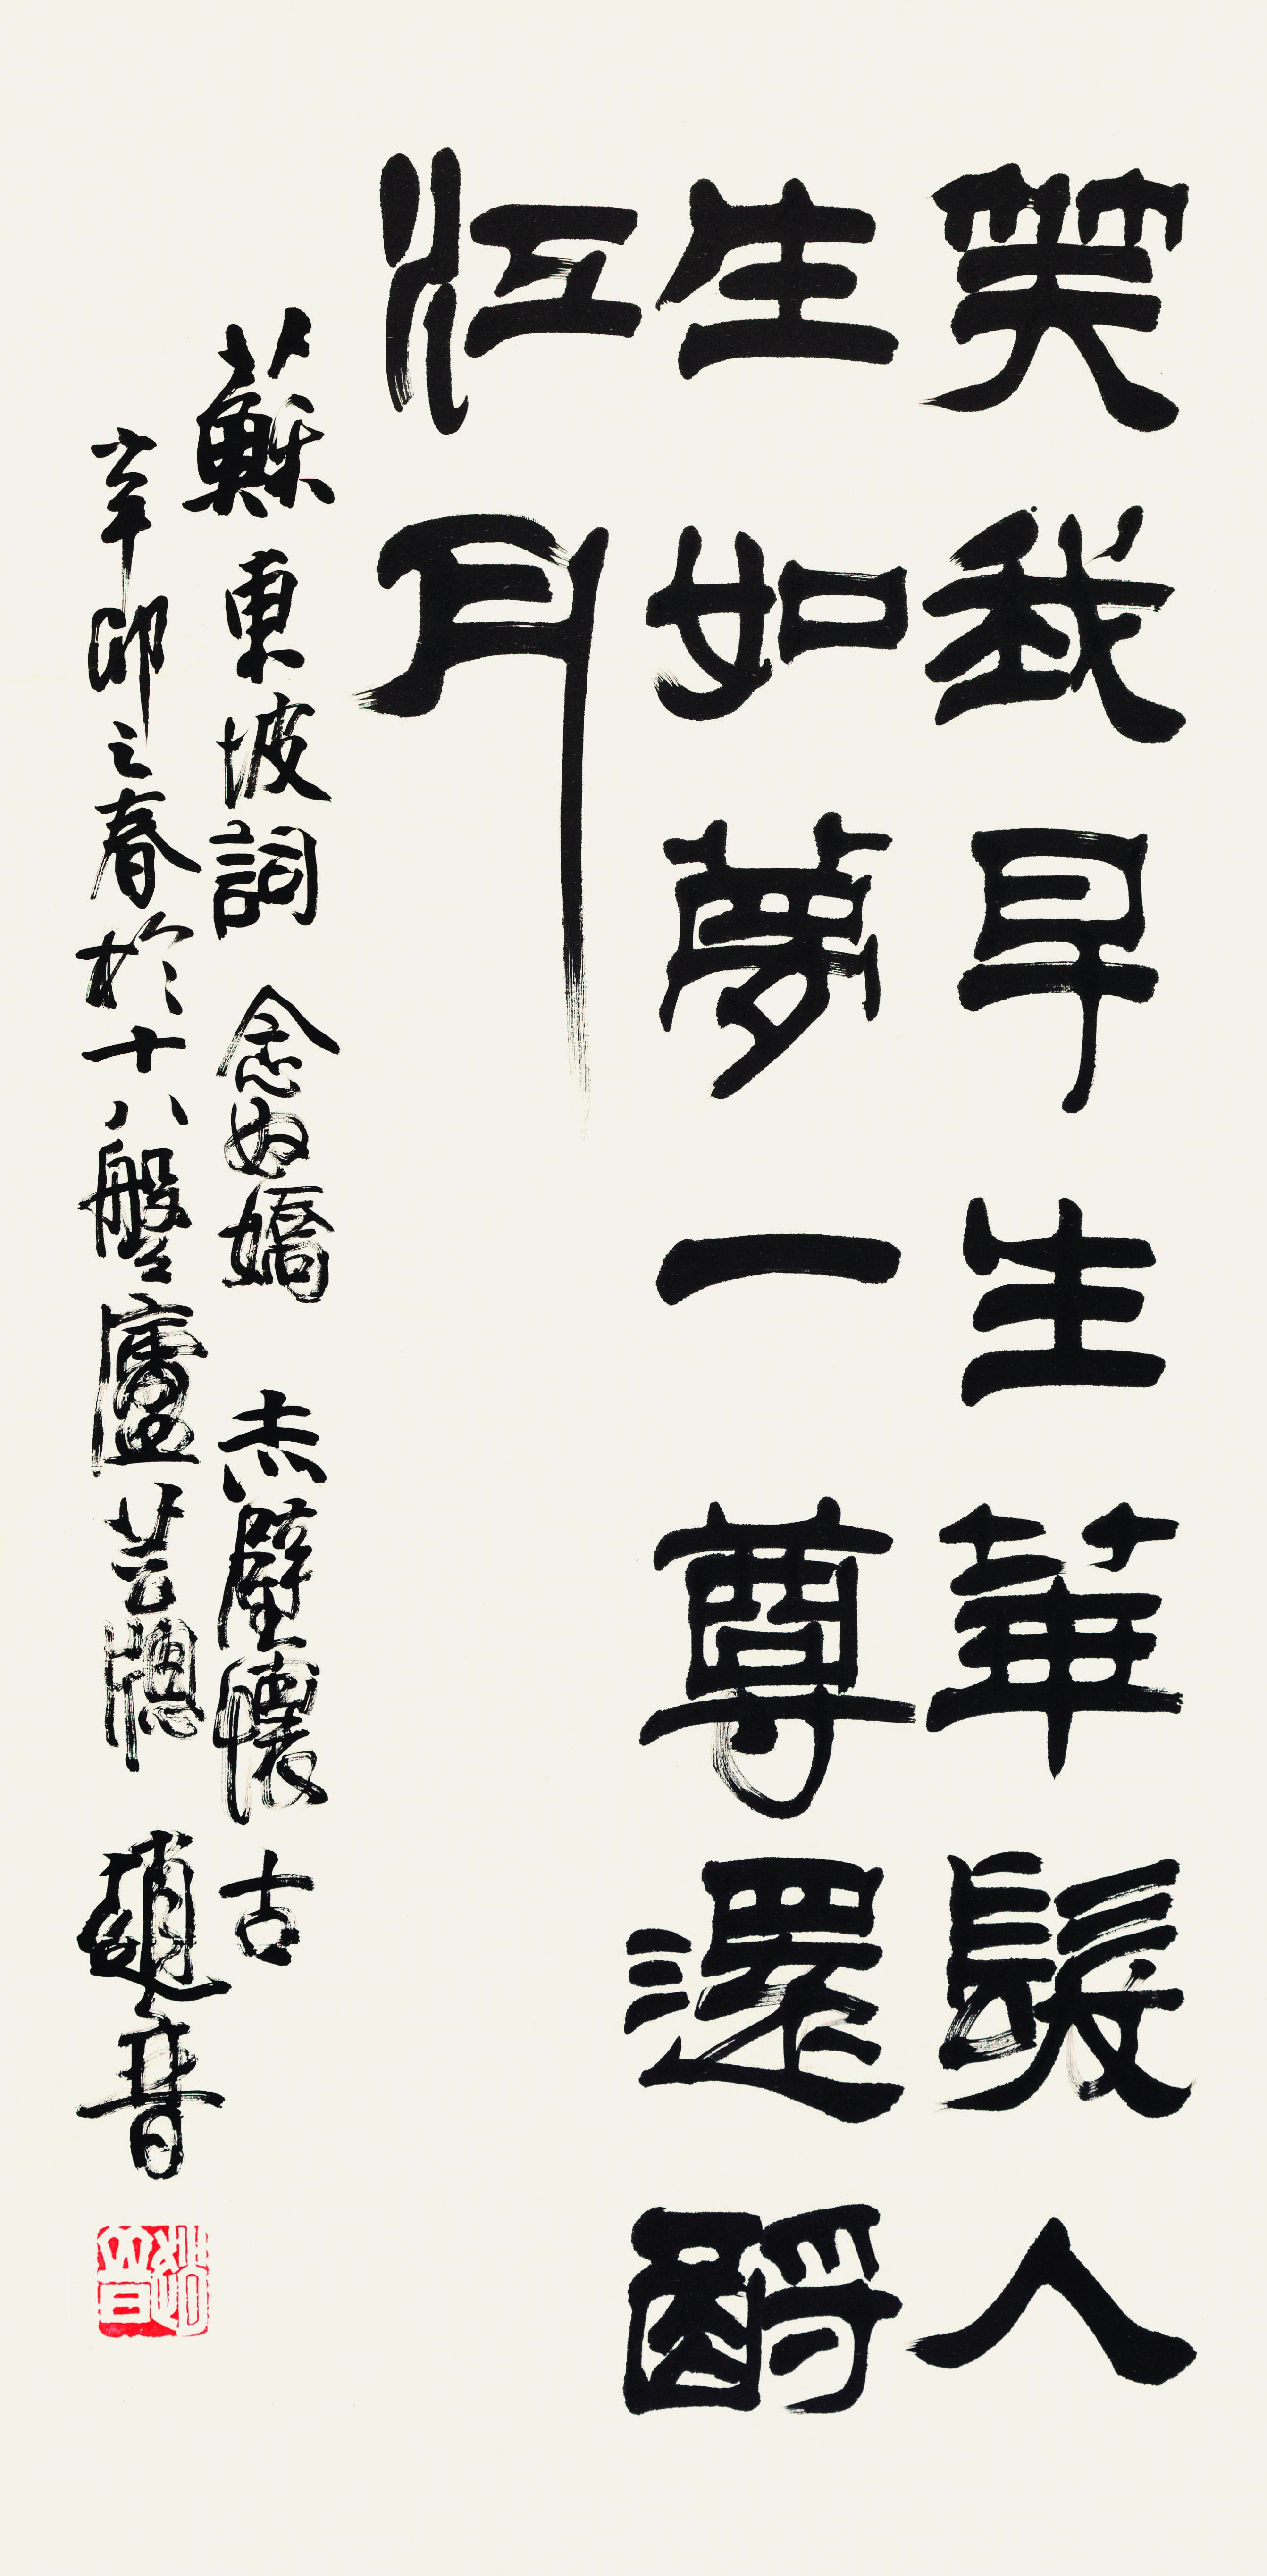 笑我早生華髮人
生如夢一尊還酹
江月
蘇東坡詞 念奴嬌 赤壁懷古
辛卯之春於十八盤廬芸牕 趙普
趙普